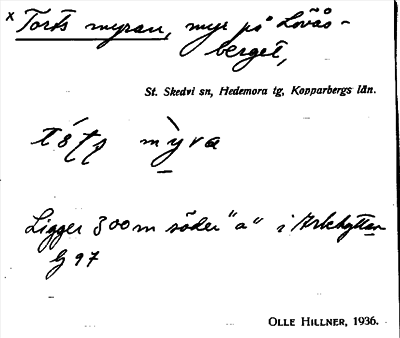 x Torts myran, myr på Lovås-
berget,
St. Skedvi sn, Hedemora tg, Kopparbergs län.
myra
Ligger 300 m söder "a" i Arkhyttan
G 97
OLLE HILLNER, 1936.